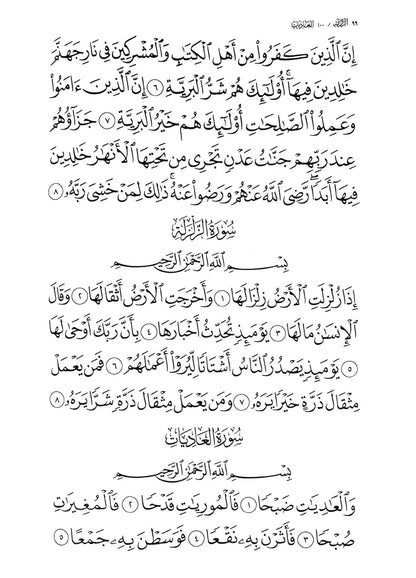 ٩٩ الزلزلة / ١٠٠ العاديات
إِنَّ ٱلَّذِينَ كَفَرُوا۟ مِنْ أَهْلِ ٱلْكِتَٰبِ وَٱلْمُشْرِكِينَ فِى نَارِ جَهَنَّمَ
خَٰلِدِينَ فِيهَآ أُو۟لَٰٓئِكَ هُمْ شَرُّ ٱلْبَرِيَّةِ ۝٦ إِنَّ ٱلَّذِينَ ءَامَنُوا۟
وَعَمِلُوا۟ ٱلصَّٰلِحَٰتِ أُو۟لَٰٓئِكَ هُمْ خَيْرُ ٱلْبَرِيَّةِ ۝٧ جَزَآؤُهُمْ
عِندَ رَبِّهِمْ جَنَّٰتُ عَدْنٍ تَجْرِى مِن تَحْتِهَا ٱلْأَنْهَٰرُ خَٰلِدِينَ
فِيهَآ أَبَدًا رَّضِىَ ٱللَّهُ عَنْهُمْ وَرَضُوا۟ عَنْهُ ذَٰلِكَ لِمَنْ خَشِىَ رَبَّهُۥ ۝٨
سُورَةُ الزَّلْزَلَةِ
بِسْمِ ٱللَّهِ ٱلرَّحْمَٰنِ ٱلرَّحِيمِ
إِذَا زُلْزِلَتِ ٱلْأَرْضُ زِلْزَالَهَا ۝١ وَأَخْرَجَتِ ٱلْأَرْضُ أَثْقَالَهَا ۝٢ وَقَالَ
ٱلْإِنسَٰنُ مَا لَهَا ۝٣ يَوْمَئِذٍ تُحَدِّثُ أَخْبَارَهَا ۝٤ بِأَنَّ رَبَّكَ أَوْحَىٰ لَهَا
۝٥ يَوْمَئِذٍ يَصْدُرُ ٱلنَّاسُ أَشْتَاتًا لِّيُرَوْا۟ أَعْمَٰلَهُمْ ۝٦ فَمَن يَعْمَلْ
مِثْقَالَ ذَرَّةٍ خَيْرًا يَرَهُۥ ۝٧ وَمَن يَعْمَلْ مِثْقَالَ ذَرَّةٍ شَرًّا يَرَهُۥ ۝٨
سُورَةُ العَادِيَات
بِسْمِ ٱللَّهِ ٱلرَّحْمَٰنِ ٱلرَّحِيمِ
وَٱلْعَٰدِيَٰتِ ضَبْحًا ۝١ فَٱلْمُورِيَٰتِ قَدْحًا ۝٢ فَٱلْمُغِيرَٰتِ
صُبْحًا ۝٣ فَأَثَرْنَ بِهِۦ نَقْعًا ۝٤ فَوَسَطْنَ بِهِۦ جَمْعًا ۝٥